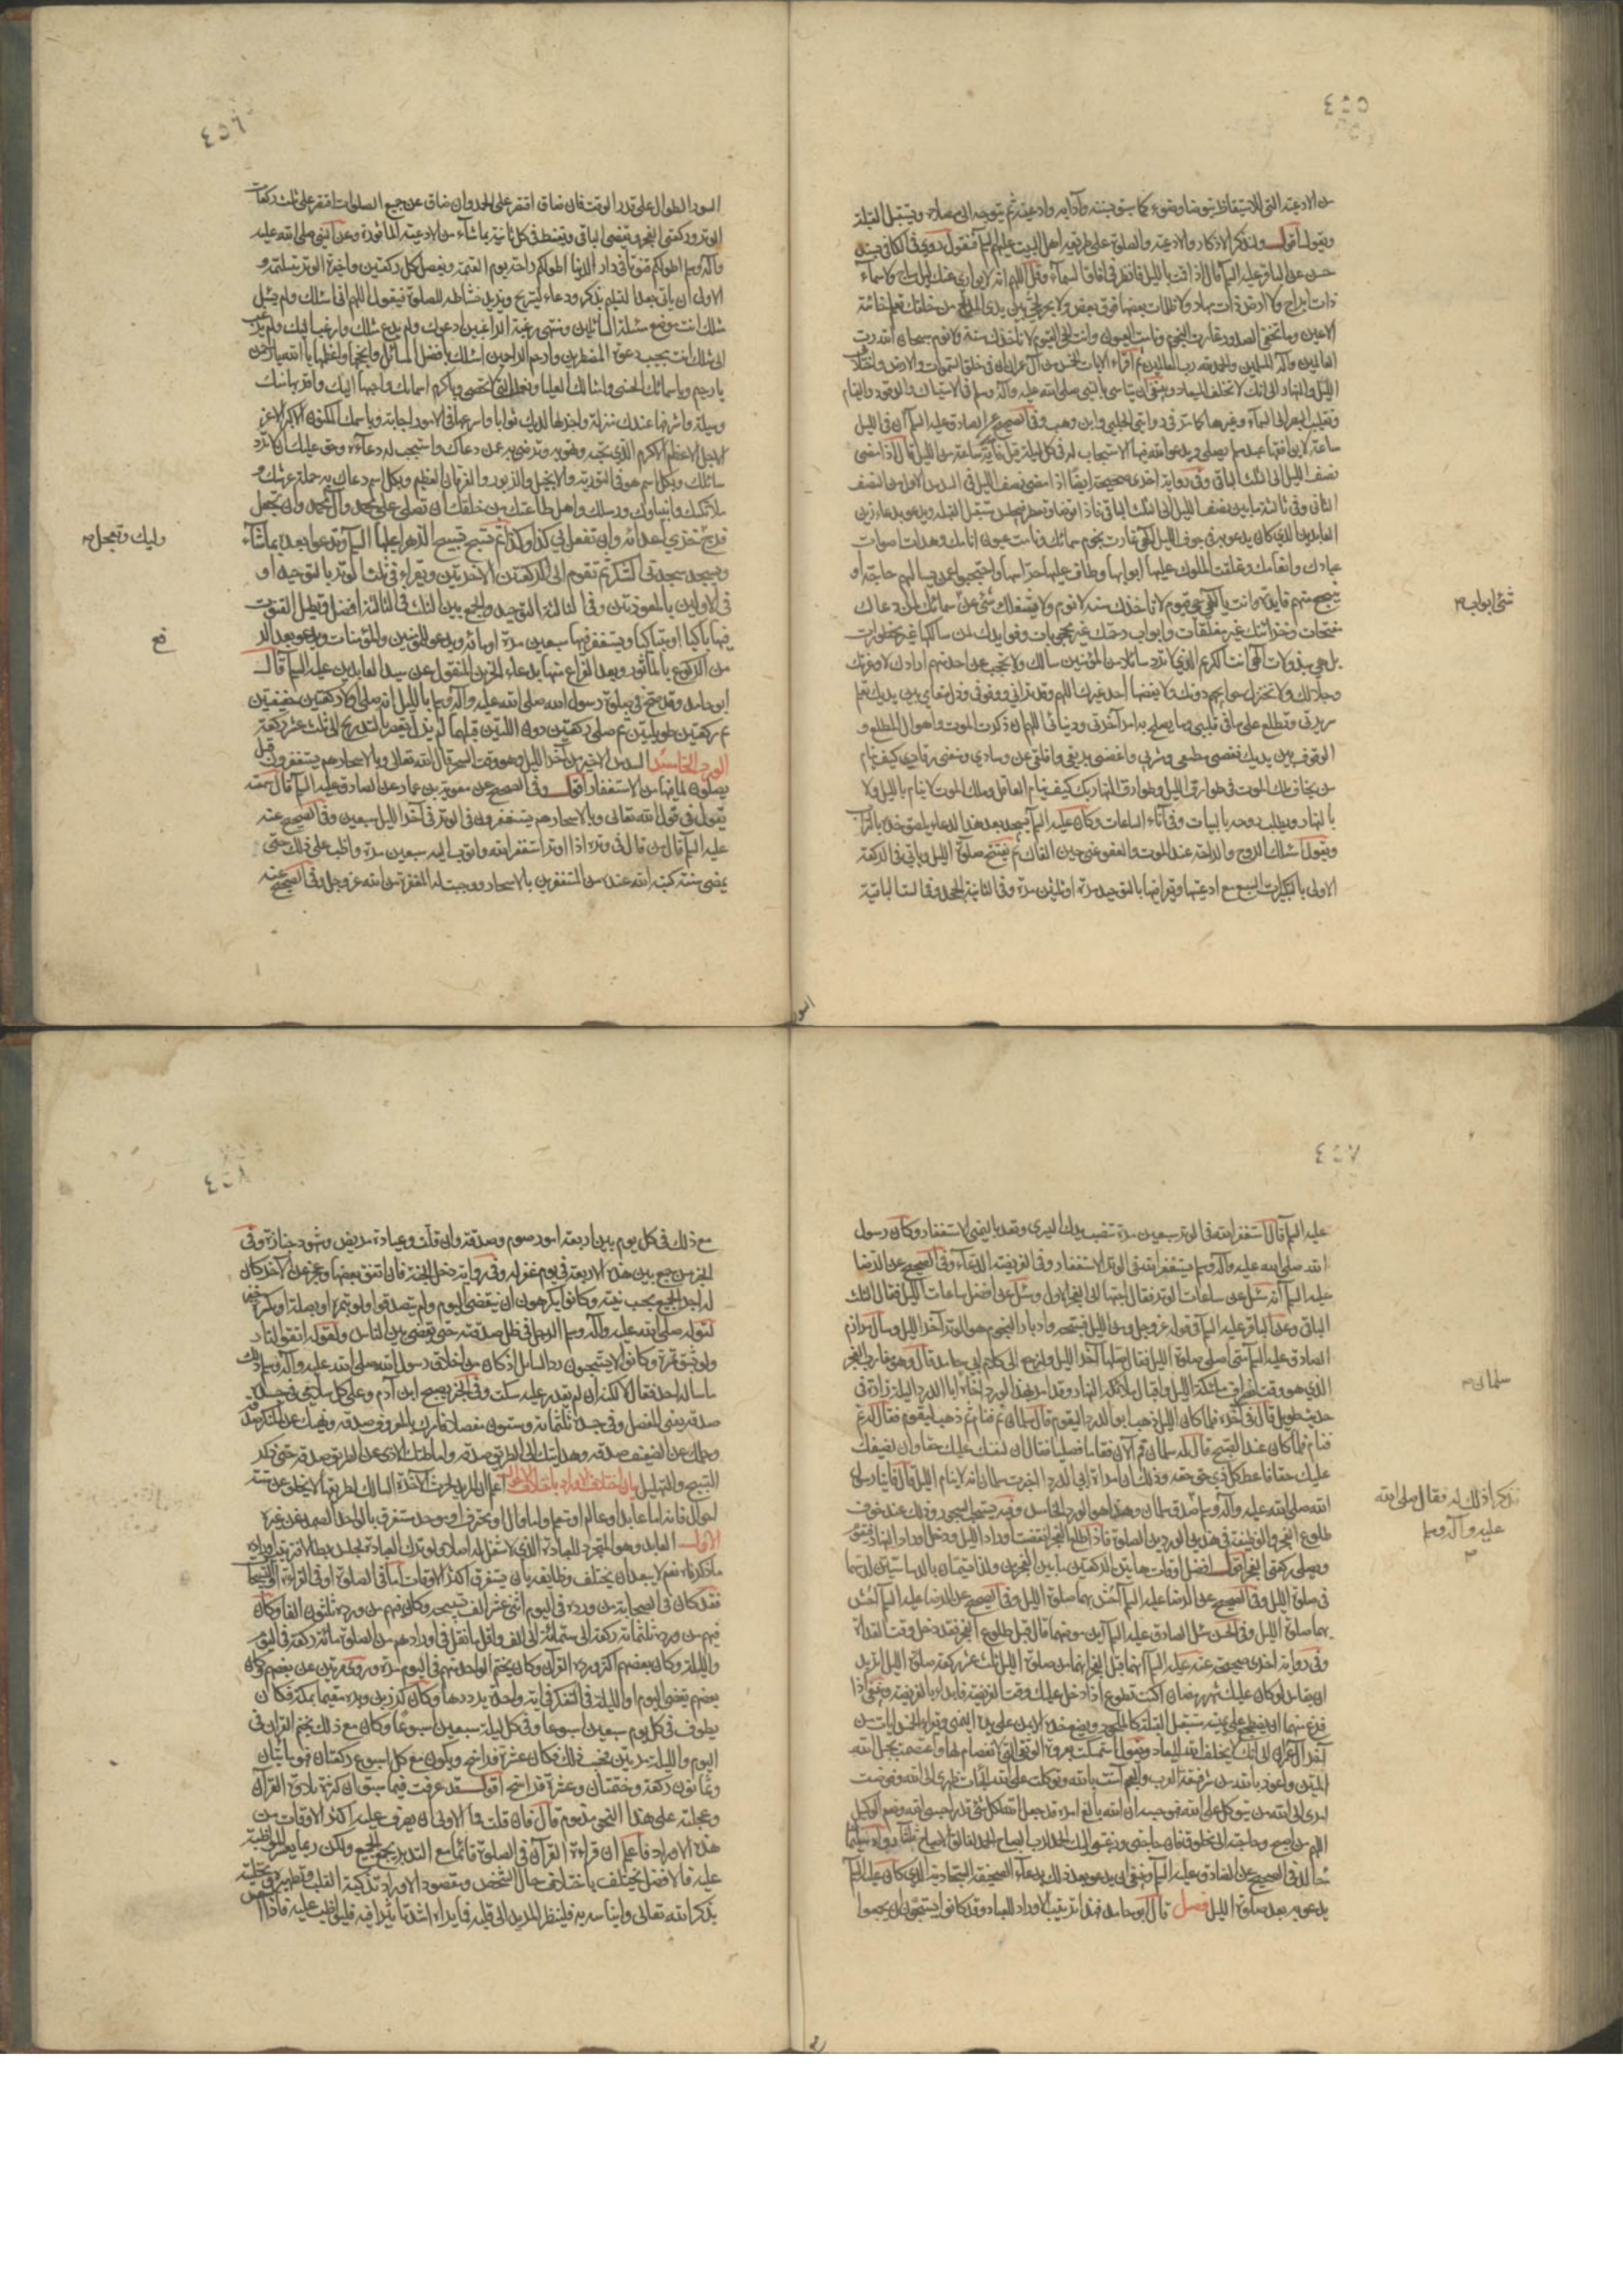 ٤٥٥
من الادعية التى للاستيقاظ يتوضأ وضوء كما سبق بسننه وآدابه وادعيته ثم يتوجه الى مصلاه ويستقبل القبلة
ويقول اقول ولنذكر الاذكار والادعية والصلوة على طريقة اهل البيت عليهم السلم فنقول روى فى الكافى بسند
حسن عن الباقر عليه السلم قال اذا قمت بالليل فانظر فى آفاق السماء وقل اللهم انه لا يوارى عنك ليل ساج ولا سماء
ذات ابراج ولا ارض ذات مهاد ولا ظلمات بعضها فوق بعض ولا بحر لجى بين يدى المدلج من خلقك تعلم خائنة
الاعين وما تخفى الصدور غارت النجوم ونامت العيون وانت الحى القيوم لا تأخذك سنة ولا نوم سبحان الله رب
العالمين وآله المرسلين والحمد لله رب العالمين ثم اقراء الايات الخمس من آل عمران ان فى خلق السموات والارض واختلاف
الليل والنهار الى انك لا تخلف الميعاد وينبغى ان يتاسى بالنبى صلى الله عليه وآله وسلم فى الاستياك قبل الوقود والقيام
وتقليب البصر الى السماء وغيرها كما مر فى روايتى الحلبى وابن وهب وفى الصحيح عن الصادق عليه السلم ان فى الليل
ساعة لا يوافقها عبد مسلم يصلى ويدعو الله فيها الا استجاب له فى كل ليلة قيل فاية ساعة من الليل قال اذا مضى
نصف الليل الى الثلث الباقى وفى رواية اخرى صحيحة ايضا اذا مضى نصف الليل فى السدس الاول من النصف
الثانى وفى ثالثة ما بين نصف الليل الى الثلث الباقى فاذا توضأ وتعطر فيجلس مستقبل القبلة ويدعو بدعاء زين
العابدين الذى كان يدعو به فى جوف الليل الهى غارت نجوم سمائك ونامت عيون انامك وهدأت اصوات
عبادك وانعامك وغلقت الملوك عليها ابوابها وطاف عليها حراسها واحتجبوا عمن يسالهم حاجة او
ينتجع منهم فايدة وانت يا الهى حى قيوم لا تاخذك سنة ولا نوم ولا يشغلك شئ عن شئ ابواب سمائك لمن دعاك
مفتحات وخزائنك غير مغلقات وابواب رحمتك غير محجوبات وفوايدك لمن سالكها غير محظورات
بل هى مبذولات الهى انت الكريم الذى لا ترد سائلا من المؤمنين سالك ولا تحتجب عن احد منهم ارادك لا وعزتك
وجلالك ولا تختزل حوايجهم دونك ولا يقضيها احد غيرك اللهم وقد ترانى ووقوفى وذل مقامى بين يديك تعلم
سريرتى وتطلع على ما فى قلبى وما يصلح به امر آخرتى ودنيائى اللهم ان ذكرت الموت واهوال المطلع و
الوقوف بين يديك نغصنى مطعمى ومشربى واغصنى بريقى واقلقنى عن وسادى ومنعنى رقادى كيف ينام
من يخاف ملك الموت فى طوارق الليل وطوارق النهار بل كيف ينام العاقل وملك الموت لا ينام بالليل ولا
بالنهار ويطلب روحه بالبيات وفى آناء الساعات وكان عليه السلم يسجد بعد هذا الدعاء يلصق خده بالتراب
ويقول اسئلك الروح والراحة عند الموت والعفو عنى حين القاك ثم يفتتح صلوة الليل وياتى فى الركعة
الاولى بالتكبيرات السبع مع ادعيتها ويقرا فيها بالتوحيد مرة او ثلثين مرة وفى الثانية الجحد وفى الست الباقية
شئ ابواب
السور
٤٥٦
السور الطوال على قدر الوقت فان ضاق اقتصر على الحمد وان ضاق عن جميع الصلوات اقتصر على ثلث ركعات
الوتر وركعتى الفجر ويقضى الباقى ويقنط فى كل ثانية بما شاء من الادعية الماثورة وعن النبى صلى الله عليه
وآله وسلم اطولكم قنوتا فى دار الدنيا اطولكم راحة يوم القيمة ويفصل كل ركعتين واخيرة الوتر بتسليمة و
الاولى ان ياتى بعد التسليم بذكر ودعاء ليستريح ويزيد نشاطه للصلوة فيقول اللهم انى اسئلك ولم يسئل
مثلك انت موضع مسئلة السائلين ومنتهى رغبة الراغبين ادعوك ولم يدع مثلك وارغب اليك ولم يرغب
الى مثلك انت مجيب دعوة المضطرين وارحم الراحمين اسئلك بافضل المسائل وانجحها واعظمها يا الله يا رحمن
يا رحيم وباسمائك الحسنى وامثالك العليا ونعمك التى لا تحصى وباكرم اسمائك واحبها اليك واقربها منك
وسيلة واشرفها عندك منزلة واجزلها لديك ثوابا واسرعها فى الامور اجابة وباسمك المكنون الاكبر الاعز
الاجل الاعظم الاكرم الذى تحبه وتهويه وترضى به عمن دعاك واستجبت له دعاءه وحق عليك ان لا ترد
سائلك وبكل اسم هو فى التورية والانجيل والزبور والفرقان العظيم وبكل اسم دعاك به حملة عرشك و
ملائكتك وانبياؤك ورسلك واهل طاعتك من خلقك ان تصلى على محمد وآل محمد وان تعجل
فرج وليك وتعجل خزى اعدائه وان تفعل بى كذا وكذا ثم تسبح تسبيح الزهرا عليها السلم وتدعو بعد بما تشاء
وتسجد سجدتى الشكر ثم تقوم الى الركعتين الاخريين ويقراء فى ثلث الوتر بالتوحيد او
فى الاوليين بالمعوذتين وفى الثالثة التوحيد والجمع بين الثلث فى الثالثة افضل ويطيل القنوت
فيها باكيا او متباكيا ويستغفر فيها سبعين مرة او مائة ويدعو للمؤمنين والمؤمنات ويدعو بعد الرفع
من الركوع بالماثور وبعد الفراغ منها بدعاء الحزين المنقول عن سيد العابدين عليه السلم قال
ابو حامد وقد صح فى صلوة رسول الله صلى الله عليه وآله وسلم بالليل انه صلى اولا ركعتين خفيفتين
ثم ركعتين طويلتين ثم صلى ركعتين دون اللتين قبلهما ثم لم يزل يقصر بالتدريج الى ثلث عشر ركعة
الورد الخامس السدس الاخير من آخر الليل وهو وقت السحر قال الله تعالى وبالاسحار هم يستغفرون قيل
يصلون لما فيها من الاستغفار اقول وفى الصحيح عن معوية بن عمار عن الصادق عليه السلم قال سمعته
يقول فى قول الله تعالى وبالاسحار هم يستغفرون فى الوتر فى آخر الليل سبعين وفى الصحيح عنه
عليه السلم قال من قال فى وتره اذا اوتر استغفر الله واتوب اليه سبعين مرة وواظب على ذلك حتى
يمضى سنة كتبه الله عنده من المستغفرين بالاسحار ووجبت له المغفرة من الله عز وجل وفى الصحيح عنه
وليك وتعجل
فع
٤٥٧
عليه السلم قال استغفر الله فى الوتر سبعين مرة تنصب يدك اليسرى وتعد باليمنى الاستغفار وكان رسول
الله صلى الله عليه وآله وسلم يستغفر الله فى الوتر الاستغفار وفى الفريضة الدعاء وفى الصحيح عن الرضا
عليه السلم انه سئل عن ساعات الوتر فقال احبها الى الفجر الاول وسئل عن افضل ساعات الليل فقال الثلث
الباقى وعن الباقر عليه السلم فى قوله عز وجل ومن الليل فسبحه وادبار النجوم هو الوتر آخر الليل وسال مرازم
الصادق عليه السلم متى اصلى صلوة الليل فقال صلها آخر الليل ولنرجع الى كلام ابى حامد قال وهو مقارب الفجر
الذى هو وقت انصراف ملئكة الليل واقبال ملئكة النهار وقد امر بهذا الورد سلمان اخاه ابا الدرداء ليلة زاره فى
حديث طويل قال فى آخره فلما كان الليل ذهب ابو الدرداء ليقوم قال سلمان نم فنام ثم ذهب ليقوم فقال له نم
فنام فلما كان عند الصبح قال له سلمان قم الآن فقاما فصليا فقال ان لنفسك عليك حقا وان لضيفك
عليك حقا فاعط كل ذى حق حقه وذلك ان امراة ابى الدرداء اخبرت سلمان انه لا ينام الليل قال فاتيا رسول
الله صلى الله عليه وآله وسلم صدق سلمان وهذا هو الورد الخامس وفيه يستحب السحور وذلك عند خوف
طلوع الفجر والوظيفة فى هذين الوردين الصلوة فاذا طلع الفجر انقضت اوراد الليل ودخل اوراد النهار فيقوم
ويصلى ركعتى الفجر اقول افضل اوقات هاتين الركعتين ما بين الفجرين ولذا تسميان بالدساستين لدسهما
فى صلوة الليل وفى الصحيح عن الرضا عليه السلم احش بهما صلوة الليل وفى الصحيح عن الرضا عليه السلم احش
بهما صلوة الليل وفى الحسن سئل الصادق عليه السلم اين موضعهما قال قبل طلوع الفجر فاذا طلع الفجر فقد دخل وقت الغداة
وفى رواية اخرى صحيحة عنه عليه السلم انهما قبل الفجر انهما من صلوة الليل ثلث عشر ركعة صلوة الليل اتريد
ان تقايس لو كان عليك من شهر رمضان اكنت تطوع اذا دخل عليك وقت الفريضة فابدا بالفريضة وينبغى اذا
فرغ منهما ان يضطجع على يمينه مستقبل القبلة كالملحود ويضع خده الايمن على يده اليمنى ويقراء الخمس ايات من
آخر آل عمران الى انك لا تخلف الميعاد ويقول استمسكت بعروة الله الوثقى التى لا انفصام لها واعتصمت بحبل الله
المتين واعوذ بالله من شر فسقة العرب والعجم آمنت بالله وتوكلت على الله الجأت ظهرى الى الله وفوضت
امرى الى الله من يتوكل على الله فهو حسبه ان الله بالغ امره قد جعل الله لكل شئ قدرا حسبى الله ونعم الوكيل
اللهم من اصبح وحاجته الى مخلوق فان حاجتى ورغبتى اليك الحمد لرب الصباح الحمد لفالق الاصباح ثلثا
عن الصادق عليه السلم وينبغى ان يدعو بعد ذلك بدعاء الصحيفة السجادية الذى كان عليه السلم
يدعو به بعد صلوة الليل فصل قال ابو حامد فهذا ترتيب الاوراد للعباد وقد كانوا يستحبون ان يجمعوا
سلمان
فذكرا ذلك له فقال صلى الله
عليه وآله وسلم
٤٥٨
مع ذلك فى كل يوم بين اربعة امور صوم وصدقة وان قلت وعيادة مريض وشهود جنازة وفى
الخبر من جمع بين هذه الاربعة فى يوم غفر له وفى رواية دخل الجنة فان اتفق بعضها وعجز عن الآخر كان
له اجر الجميع بحسب نيته وكانوا يكرهون ان ينقضى اليوم ولم يتصدقوا ولو بتمرة او بصلة او كسرة خبز
لقوله صلى الله عليه وآله وسلم الرجل فى ظل صدقته حتى يقضى بين الناس ولقوله اتقوا النار
ولو بشق تمرة وكانوا لا يستحبون رد السايل اذ كان من اخلاق رسول الله صلى الله عليه وآله وسلم ذلك
ما ساله احد فقال لا لكنه ان لم يقدر عليه سكت وفى الخبر يصبح ابن آدم وعلى كل سلامى من جسده
صدقة يعنى المفصل وفى جسده ثلثمائة وستون مفصلا فامرك بالمعروف صدقة ونهيك عن المنكر صدقة
وحملك عن الضعيف صدقة وهدايتك الى الطريق صدقة واماطتك الاذى عن الطريق صدقة حتى ذكر
التسبيح والتهليل بيان اختلاف الاوراد باختلاف الاحوال اعلم ان المريد لحرث الآخرة السالك لطريقها لا يخلو عن ستة
احوال فانه اما عابد او عالم او متعلم واما وال او محترف او موحد مستغرق بالواحد الصمد عن غيره
الاول العابد وهو المتجرد للعبادة الذى لا شغل له اصلا ولو ترك العبادة لجلس بطالا فترتيب اوراده
ما ذكرناه نعم لا يبعد ان يختلف وظايفه بان يستغرق اكثر الاوقات اما فى الصلوة او فى القراءة او التسبيحات
فقد كان فى الصحابة من ورده فى اليوم اثنى عشر الف تسبيحة وكان فيهم من ورده ثلثون الفا وكان
فيهم من ورده ثلثمائة ركعة الى ستمائة الى الف واقل ما نقل فى اورادهم من الصلوة مائة ركعة فى اليوم
والليلة وكان بعضهم اكثر ورده القرآن وكان يختم الواحد منهم فى اليوم مرة وروى مرتين عن بعضهم وكان
بعضهم يقضى اليوم او الليلة فى التفكر فى آية واحدة يرددها وكان كرز بن وبرة مقيما بمكة فكان
يطوف فى كل يوم سبعين اسبوعا وفى كل ليلة سبعين اسبوعا وكان مع ذلك يختم القران فى
اليوم والليلة مرتين فحسب ذلك فكان عشرة فراسخ ويكون مع كل اسبوع ركعتان فهو مائتان
وثمانون ركعة وختمتان وعشرة فراسخ اقول قد عرفت فيما سبق ان كثرة تلاوة القرآن
وعجلته على هذا النحو مذموم قال فان قلت فما الاولى ان يصرف عليه اكثر الاوقات من
هذه الاوراد فاعلم ان قراءة القرآن فى الصلوة قائما مع التدبر يجمع الجميع ولكن ربما يعسر المواظبة
عليه فالافضل يختلف باختلاف حال الشخص ومقصود الاوراد تزكية القلب وتطهيره وتحليته
بذكر الله تعالى وايناسه به فلينظر المريد الى قلبه فما يراه اشد تاثيرا فيه فليواظب عليه فاذا احس